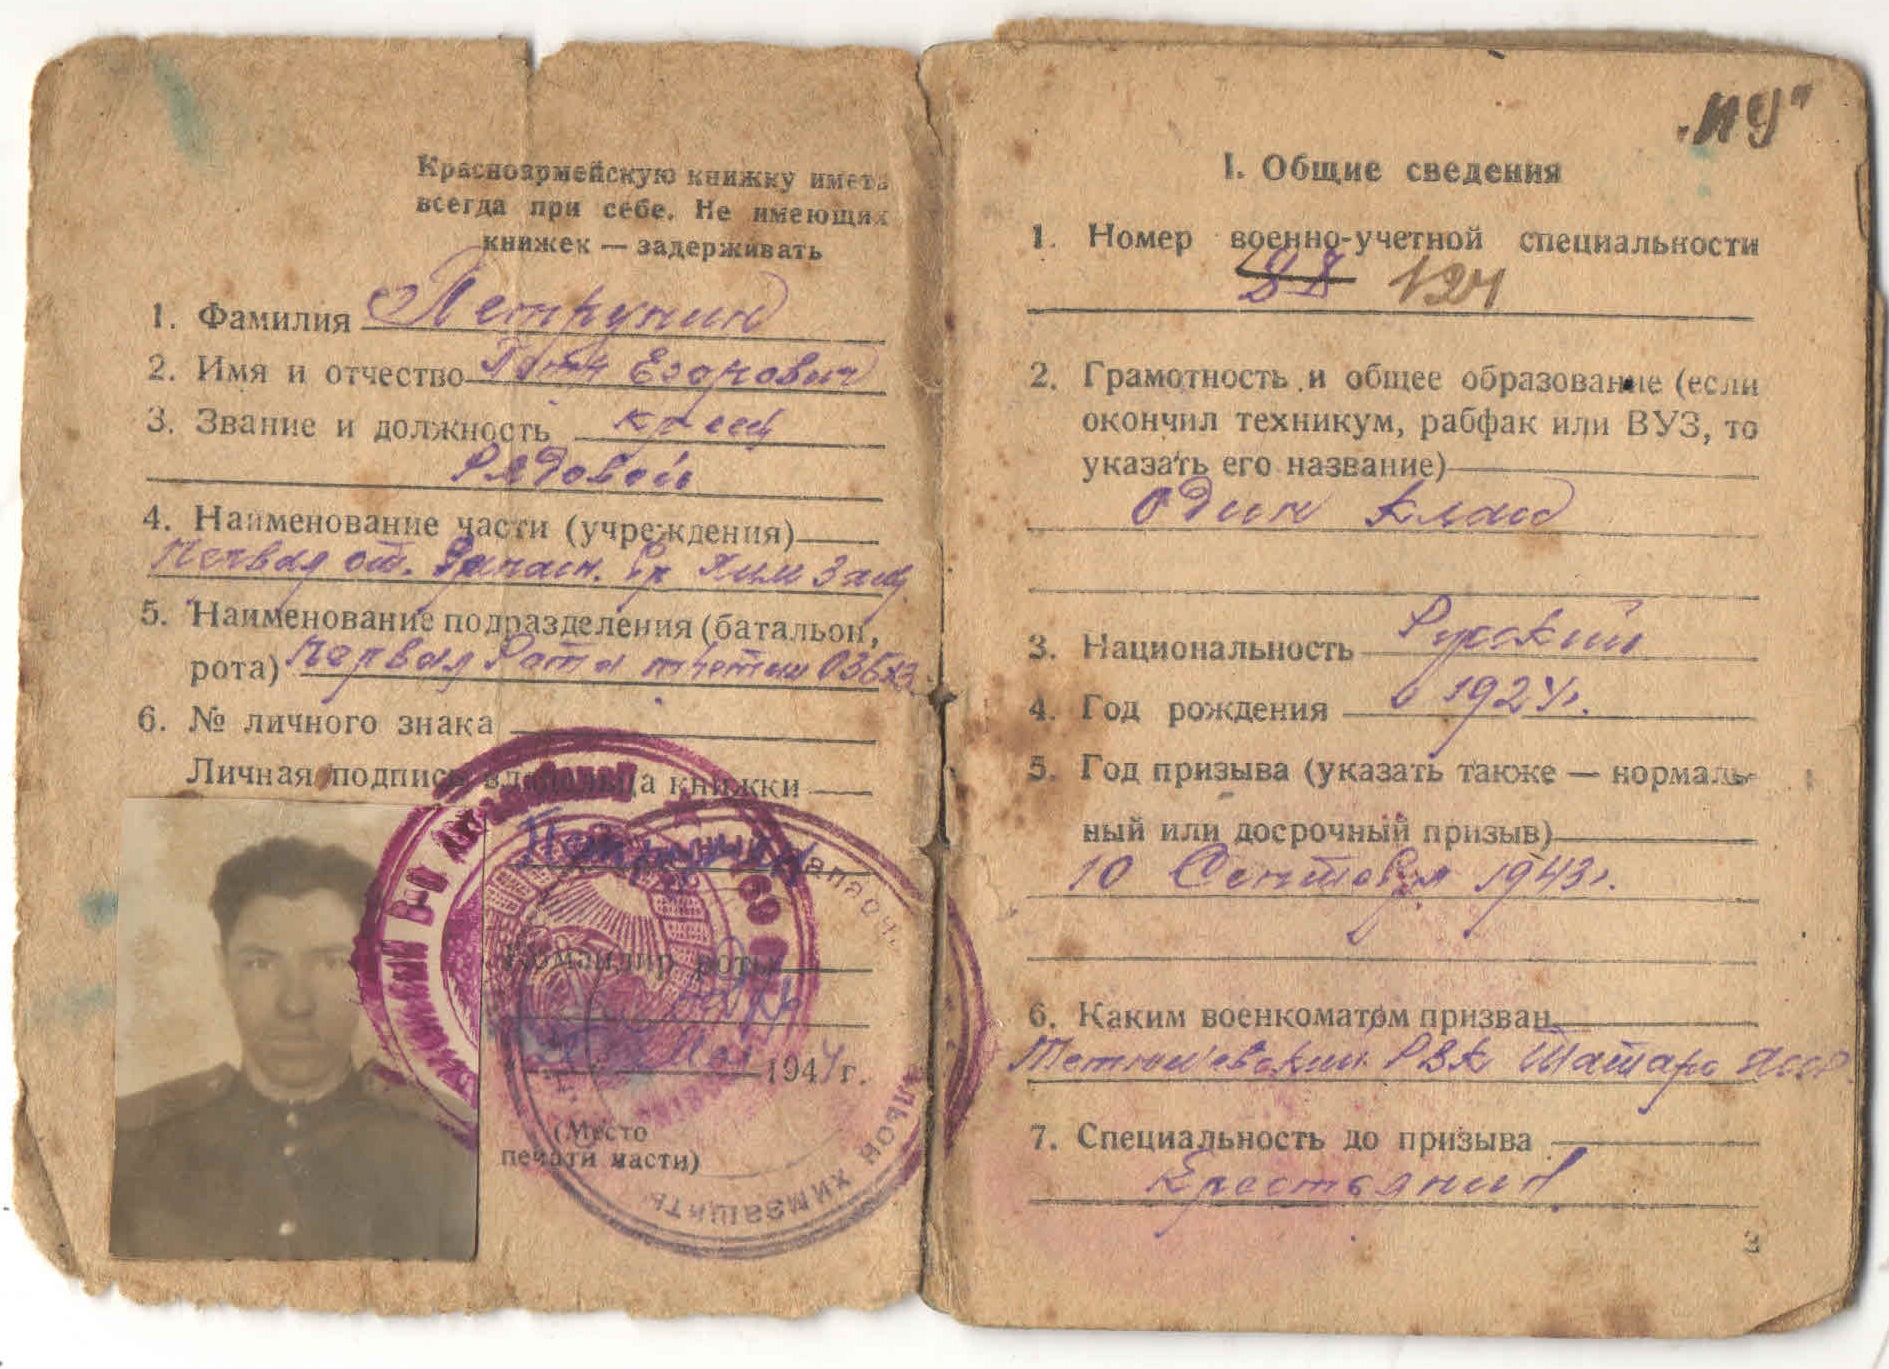 Красноармейскую книжку иметь
всегда при себе. Не имеющих
книжек — задерживать
1. Фамилия Петрунин
2. Имя и отчество Егорович
3. Звание и должность кр-ец
Рядовой
4. Наименование части (учреждения)
Первая от. Хим Защ
5. Наименование подразделения (батальон,
рота) Первая Рота
6. № личного знака
Личная подпись владельца книжки
Петрунин
Командир роты
Мая 1944 г.
(Место
печати части)
химзащиты
"ИУ"
I. Общие сведения
1. Номер военно-учетной специальности
124
2. Грамотность и общее образование (если
окончил техникум, рабфак или ВУЗ, то
указать его название)
Один класс
3. Национальность Русский
4. Год рождения 1924г.
5. Год призыва (указать также — нормаль-
ный или досрочный призыв)
10 Сентября 1943г.
6. Каким военкоматом призван
Тетюшевский РВК Татарс АССР
7. Специальность до призыва
Крестьянин
3